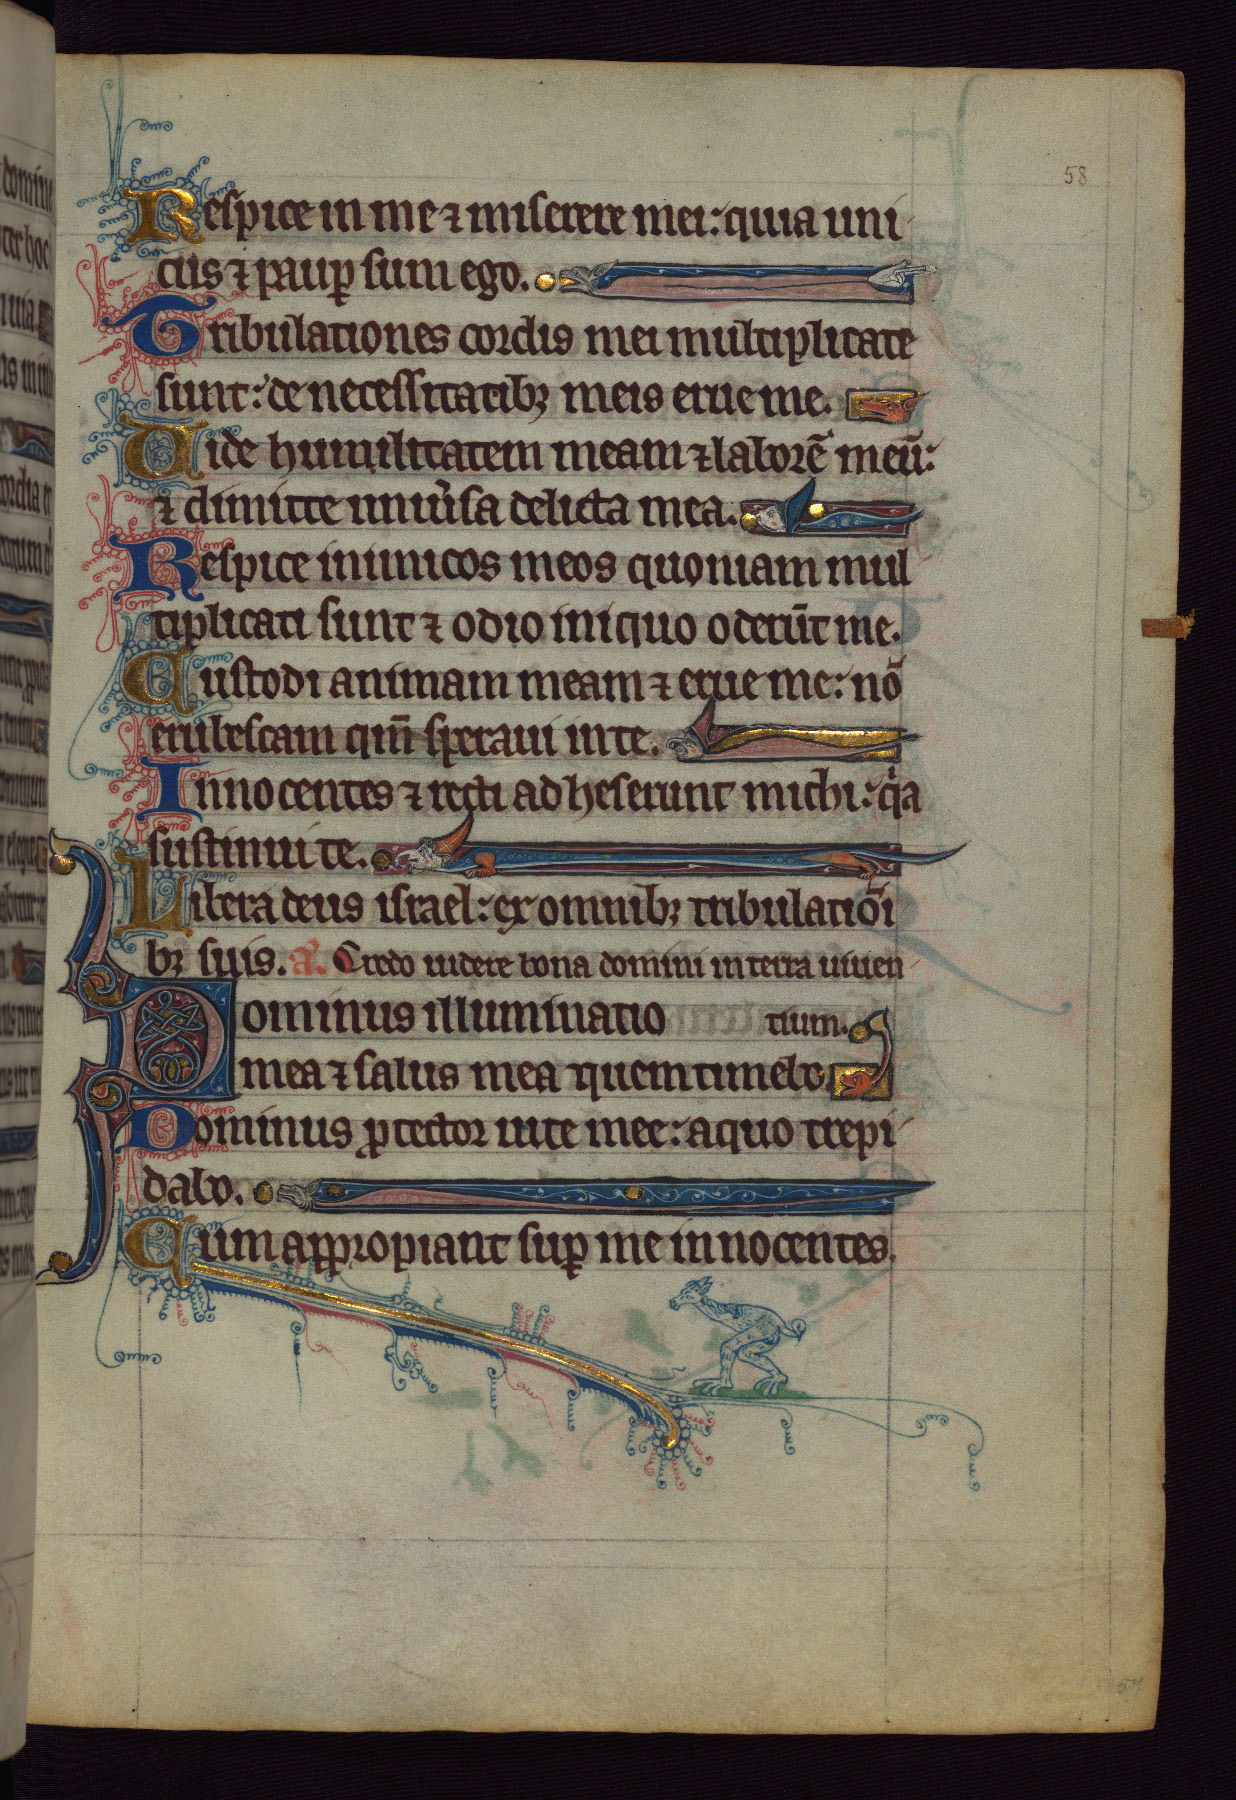 58
Respice in me ⁊ miserere mei: quia uni
cus ⁊ paup̱ sum ego.
Tribulationes cordis mei multiplicate
sunt: de necessitatibꝫ meis erue me.
Uide humilitatem meam ⁊ laborē meū:
⁊ dimitte uniu̾sa delicta mea.
Respice inimicos meos quoniam mul
tiplicati sunt ⁊ odio iniquo oderūt me.
Custodi animam meam ⁊ erue me: nō
erubescam qm̄ speraui in te.
Innocentes ⁊ recti adheserunt michi: qͥa
sustinui te.
Libera deus israel: ex omnibꝫ tribulatioı̄
bꝫ suis. a. Credo uidere bona domini in terra uiuen
tium.
Dominus illuminatio
mea ⁊ salus mea quem timebo
Dominus ꝓtector uite mee: a quo trepi
dabo.
Cum appropiant suꝑ me innocentes.